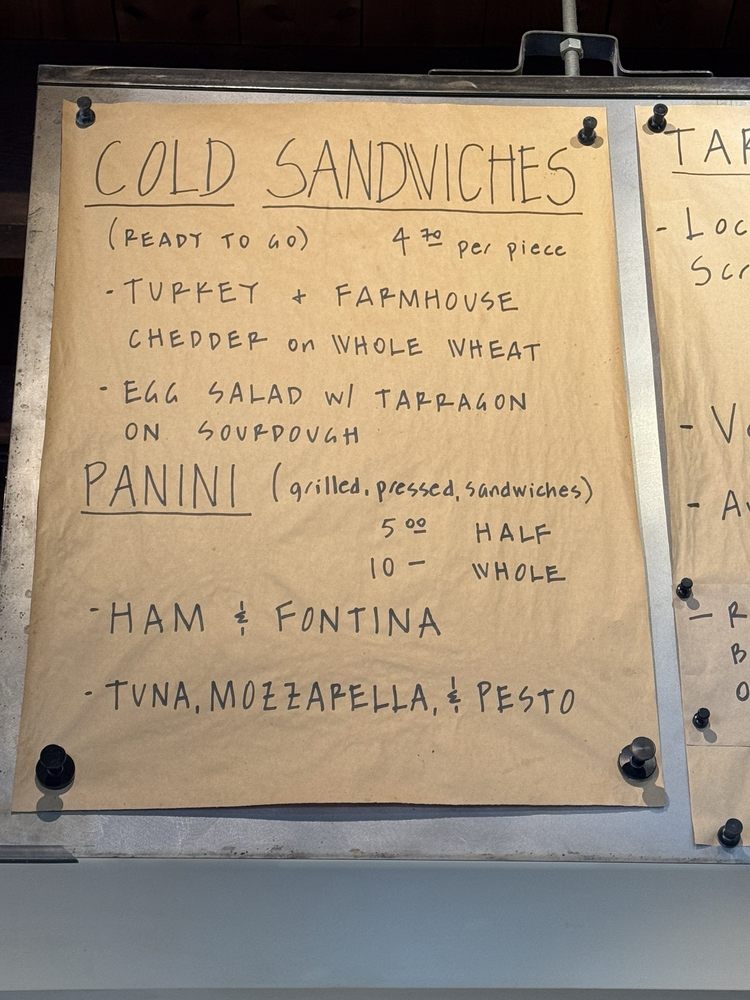 COLD SANDWICHES
(READY TO GO) 4 70 per piece
- TURKEY + FARMHOUSE
CHEDDER on WHOLE WHEAT
- EGG SALAD W/ TARRAGON
ON SOURDOUGH
PANINI (grilled, pressed, sandwiches)
5 00 HALF
10 — WHOLE
- HAM & FONTINA
- TUNA, MOZZARELLA, & PESTO